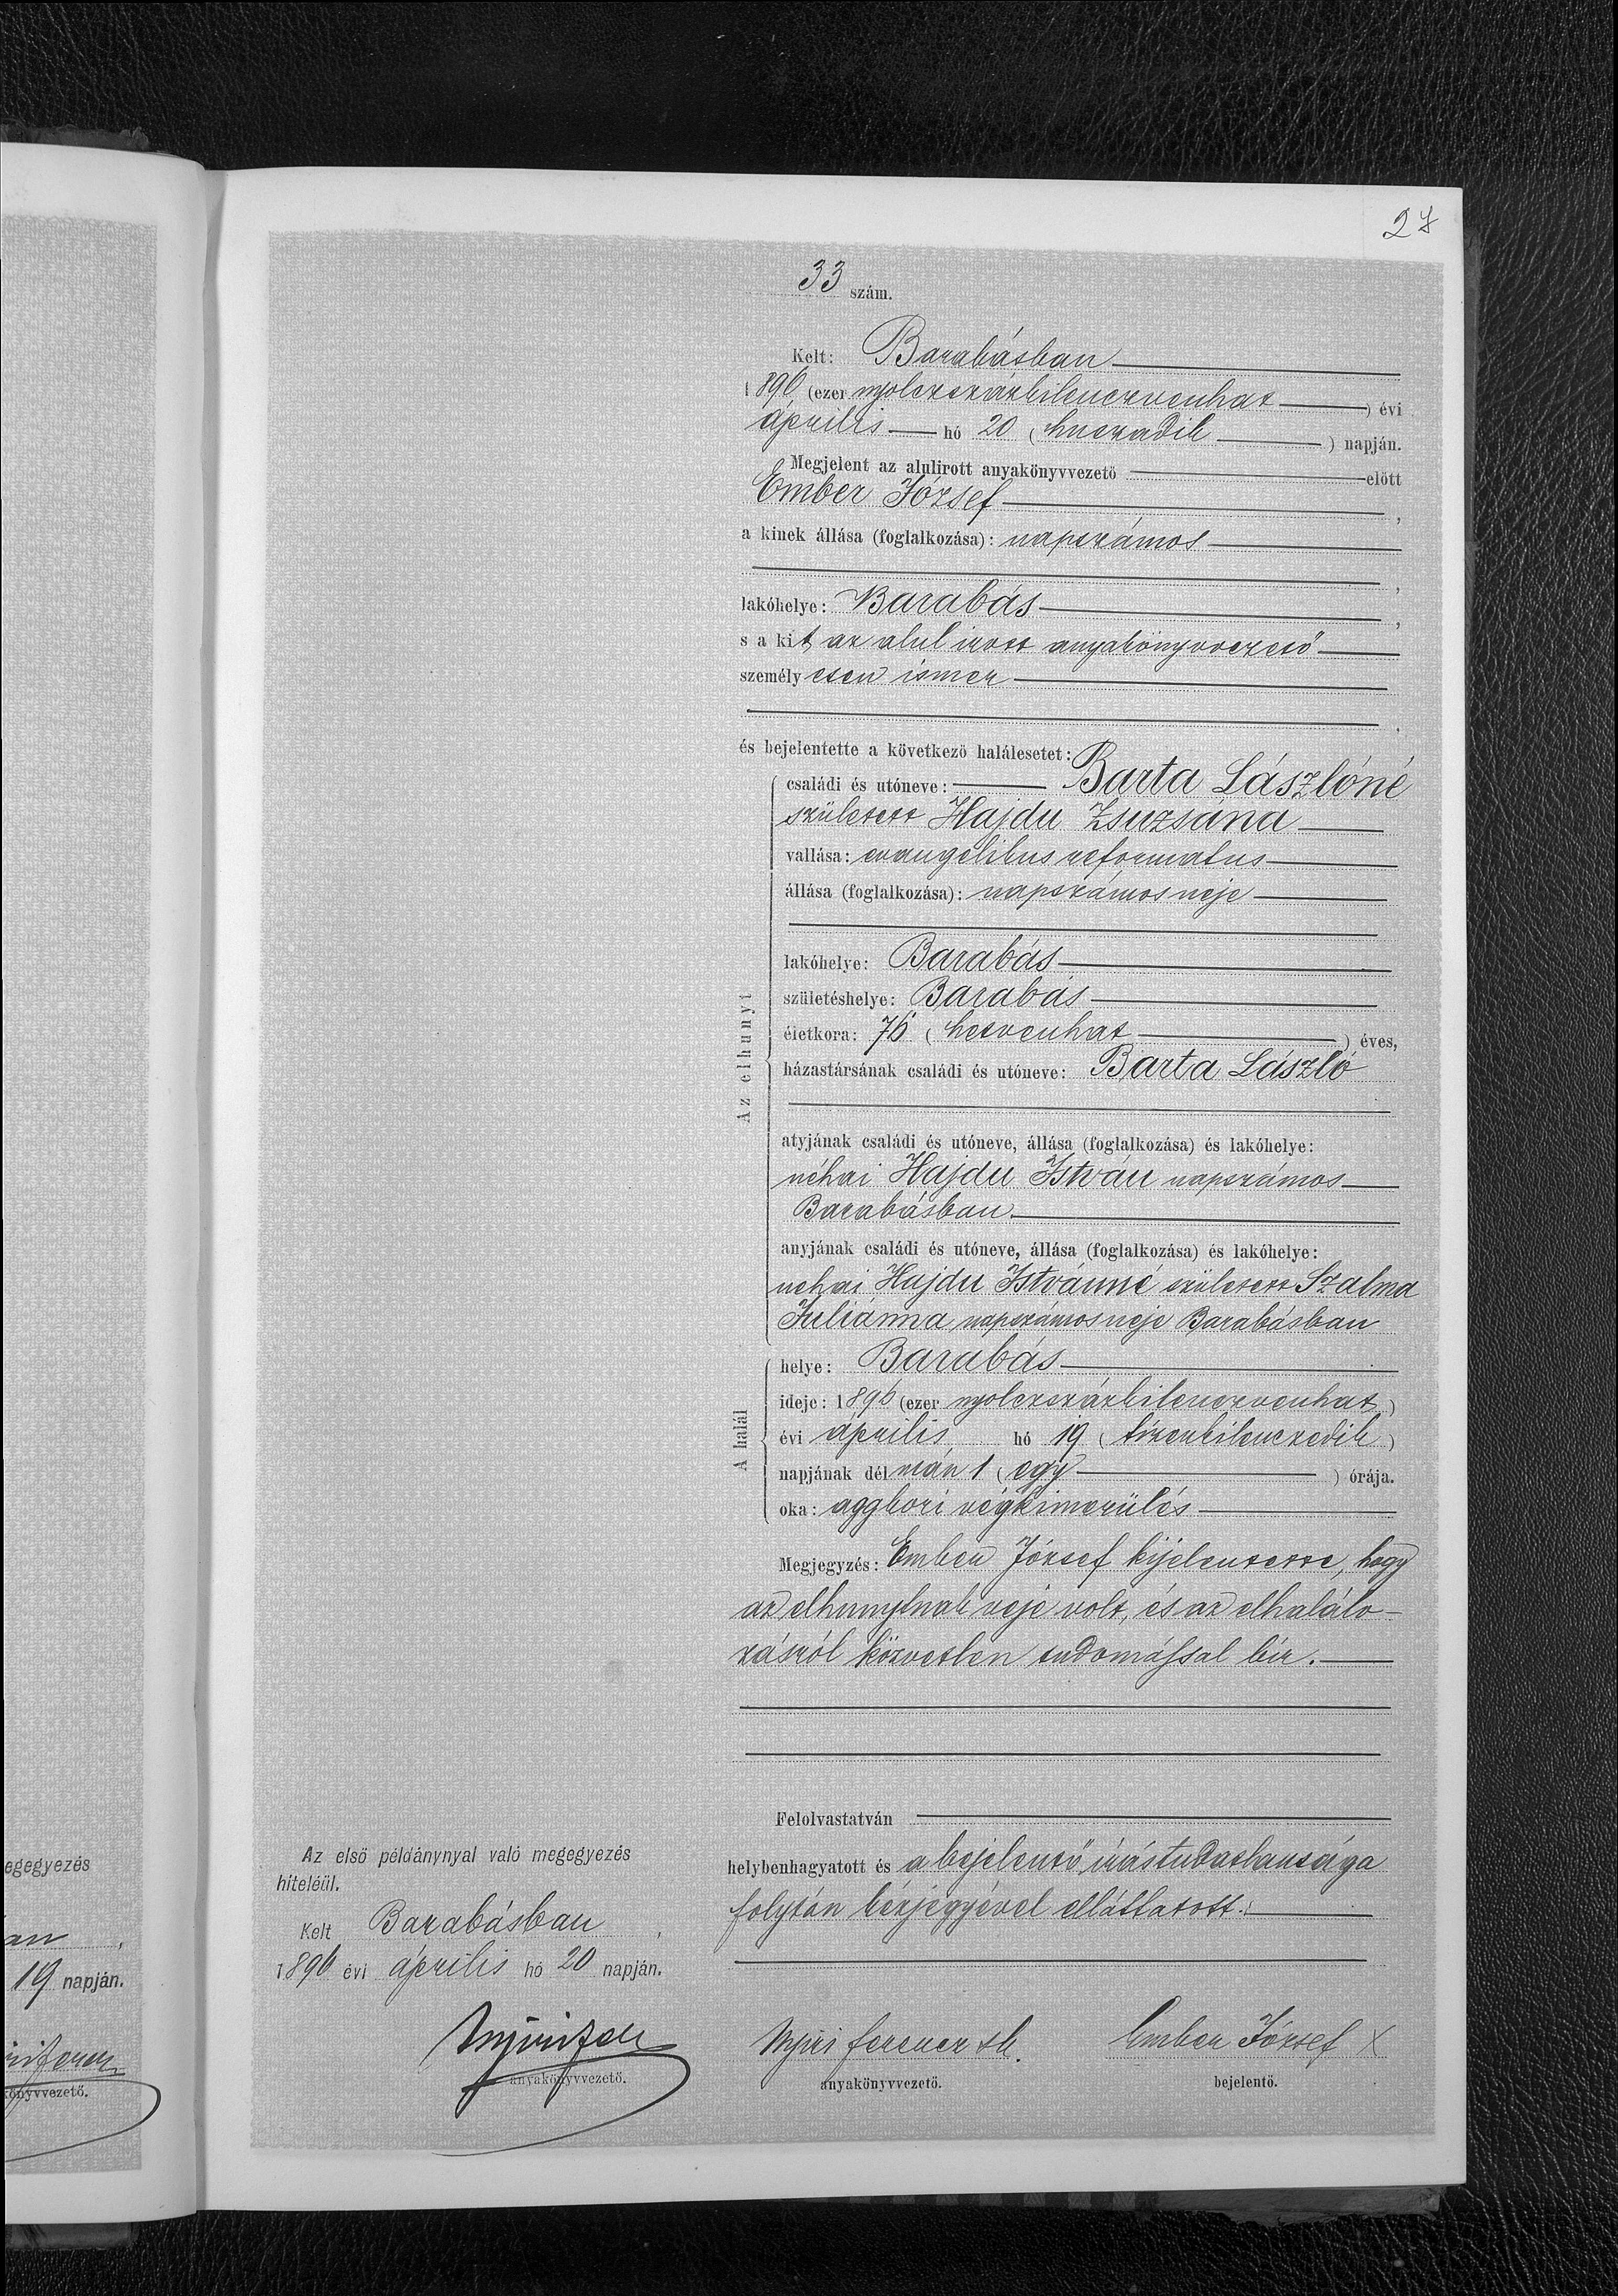 27
33 szám.
Kelt: Barabásban
1896 (ezer nyolczszázkilenczvenhat) évi
április hó 20 (huszadik) napján.
Megjelent az alulirott anyakönyvvezető előtt
Ember József,
a kinek állása (foglalkozása): napszámos
,
lakóhelye: Barabás,
s a kit az alul irott anyakönyvvezető
személyesen ismer
.
és bejelentette a következő halálesetet:
Az elhunyt
családi és utóneve: Barta Lászlóné
született Hajdu Zsuzsána
vallása: evangélikus reformatus
állása (foglalkozása): napszámos neje
lakóhelye: Barabás
születéshelye: Barabás
életkora: 76 (hetvenhat) éves,
házastársának családi és utóneve: Barta László
atyjának családi és utóneve, állása (foglalkozása) és lakóhelye:
néhai Hajdu István napszámos
Barabásban
anyjának családi és utóneve, állása (foglalkozása) és lakóhelye:
néhai Hajdu Istvánné született Szalma
Juliánna napszámos neje Barabásban
A halál
helye: Barabás
ideje: 1896 (ezer nyolczszázkilenczvenhat)
évi április hó 19 (tizenkilenczedik)
napjának délután 1 (egy) órája.
oka: aggkori végkimerülés
Megjegyzés: Ember József kijelentette, hogy
az elhunytnak veje volt, és az elhalálo-
zásról közvetlen tudomással bír.
Felolvastatván
helybenhagyatott és a bejelentő írástudatlansága
folytán kézjegyével elláttatott.
Nyiri Ferencz sk.
anyakönyvvezető.
Ember József X
bejelentő.
Az első példánynyal való megegyezés
hiteléül.
Kelt Barabásban,
1896 évi április hó 20 napján.
anyakönyvvezető.
egegyezés
an,
19 napján.
könyvvezető.